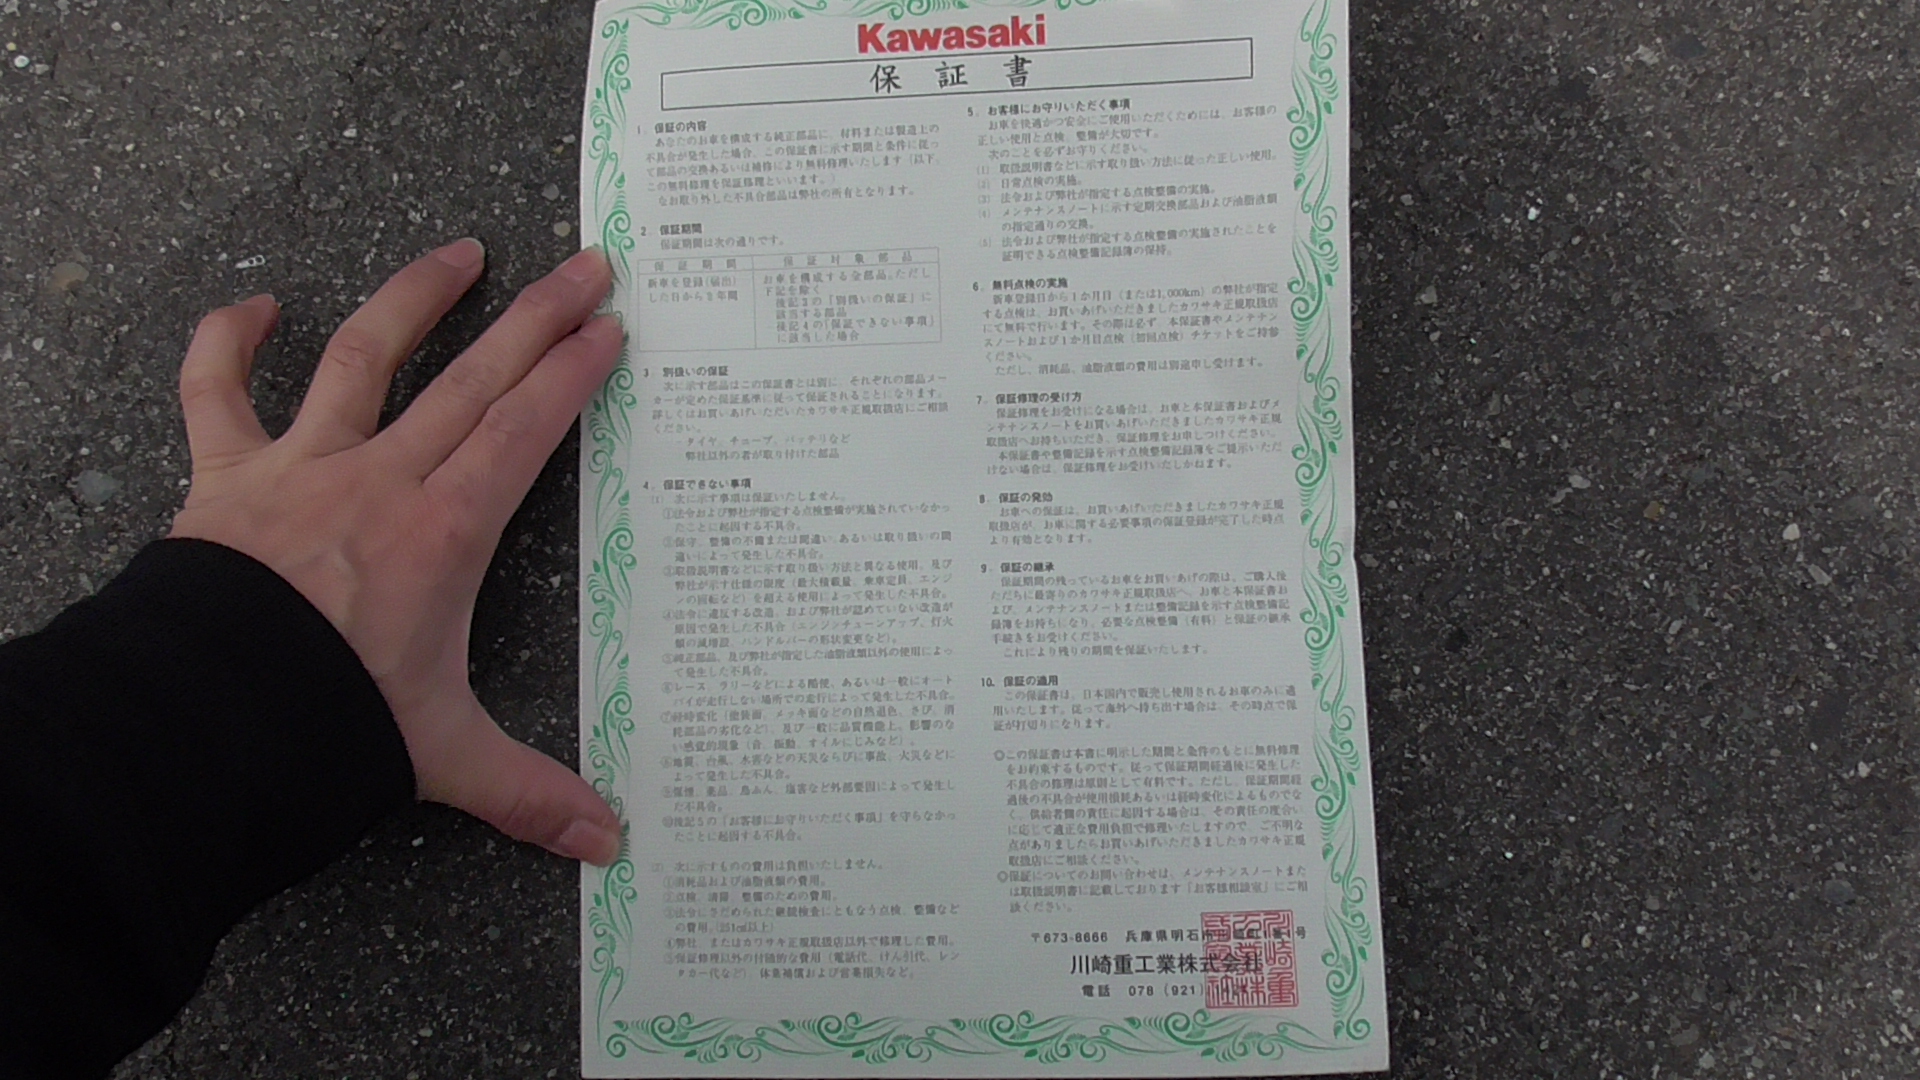 Kawasaki
保証書
1. 保証の内容
あなたのお車を構成する純正部品に、材料または製造上の
不具合が発生した場合、この保証書に示す期間と条件に従っ
て部品の交換あるいは補修により無料修理いたします（以下、
この無料修理を保証修理といいます。）
なお取り外した不具合部品は弊社の所有となります。
2. 保証期間
保証期間は次の通りです。
保証期間 保証対象部品
新車を登録(届出)
した日から2年間
お車を構成する全部品。ただし
下記を除く
後記3の「別扱いの保証」に
該当する部品
後記4の「保証できない事項」
に該当した場合
3. 別扱いの保証
次に示す部品はこの保証書とは別に、それぞれの部品メー
カーが定めた保証基準に従って保証されることになります。
詳しくはお買いあげいただいたカワサキ正規取扱店にご相談
ください。
・タイヤ、チューブ、バッテリなど
弊社以外の者が取り付けた部品
4. 保証できない事項
(1) 次に示す事項は保証いたしません。
①法令および弊社が指定する点検整備が実施されていなかっ
たことに起因する不具合。
②保守、整備の不備または間違い、あるいは取り扱いの間
違いによって発生した不具合。
③取扱説明書などに示す取り扱い方法と異なる使用、及び
弊社が示す仕様の限度（最大積載量、乗車定員、エンジ
ンの回転など）を超える使用によって発生した不具合。
④法令に違反する改造、および弊社が認めていない改造が
原因で発生した不具合（エンジンチューンアップ、灯火
類の減増設、ハンドルバーの形状変更など）。
⑤純正部品、及び弊社が指定した油脂液類以外の使用によっ
て発生した不具合。
⑥レース、ラリーなどによる酷使、あるいは一般にオート
バイが走行しない場所での走行によって発生した不具合。
⑦経時変化（塗装面、メッキ面などの自然退色、さび、消
耗部品の劣化など）、及び一般に品質機能上、影響のな
い感覚的現象（音、振動、オイルにじみなど）。
⑧地震、台風、水害などの天災ならびに事故、火災などに
よって発生した不具合。
⑨煤煙、薬品、鳥ふん、塩害など外部要因によって発生し
た不具合。
⑩後記5の「お客様にお守りいただく事項」を守らなかっ
たことに起因する不具合。
(2) 次に示すものの費用は負担いたしません。
①消耗品および油脂液類の費用。
②点検、清掃、整備のための費用。
③法令にさだめられた継続検査にともなう点検、整備など
の費用。(251cm³以上)
④弊社、またはカワサキ正規取扱店以外で修理した費用。
⑤保証修理以外の付随的な費用（電話代、けん引代、レン
タカー代など）、休業補償および営業損失など。
5. お客様にお守りいただく事項
お車を快適かつ安全にご使用いただくためには、お客様の
正しい使用と点検、整備が大切です。
次のことを必ずお守りください。
(1) 取扱説明書などに示す取り扱い方法に従った正しい使用。
(2) 日常点検の実施。
(3) 法令および弊社が指定する点検整備の実施。
(4) メンテナンスノートに示す定期交換部品および油脂液類
の指定通りの交換。
(5) 法令および弊社が指定する点検整備の実施されたことを
証明できる点検整備記録簿の保持。
6. 無料点検の実施
新車登録日から1か月目（または1,000km）の弊社が指定
する点検は、お買いあげいただきましたカワサキ正規取扱店
にて無料で行います。その際は必ず、本保証書やメンテナン
スノートおよび1か月目点検（初回点検）チケットをご持参
ください。
ただし、消耗品、油脂液類の費用は別途申し受けます。
7. 保証修理の受け方
保証修理をお受けになる場合は、お車と本保証書およびメ
ンテナンスノートをお買いあげいただきましたカワサキ正規
取扱店へお持ちいただき、保証修理をお申しつけください。
本保証書や整備記録を示す点検整備記録簿をご提示いただ
けない場合は、保証修理をお受けいたしかねます。
8. 保証の発効
お車への保証は、お買いあげいただきましたカワサキ正規
取扱店が、お車に関する必要事項の保証登録が完了した時点
より有効となります。
9. 保証の継承
保証期間の残っているお車をお買いあげの際は、ご購入後
ただちに最寄りのカワサキ正規取扱店へ、お車と本保証書お
よび、メンテナンスノートまたは整備記録を示す点検整備記
録簿をお持ちになり、必要な点検整備（有料）と保証の継承
手続きをお受けください。
これにより残りの期間を保証いたします。
10. 保証の適用
この保証書は、日本国内で販売し使用されるお車のみに適
用いたします。従って海外へ持ち出す場合は、その時点で保
証が打切りになります。
◎この保証書は本書に明示した期間と条件のもとに無料修理
をお約束するものです。従って保証期間経過後に発生した
不具合の修理は原則として有料です。ただし、保証期間経
過後の不具合が使用損耗あるいは経時変化によるものでな
く、供給者側の責任に起因する場合は、その責任の度合い
に応じて適正な費用負担で修理いたしますので、ご不明な
点がありましたらお買いあげいただきましたカワサキ正規
取扱店にご相談ください。
◎保証についてのお問い合わせは、メンテナンスノートまた
は取扱説明書に記載しております「お客様相談室」にご相
談ください。
〒673-8666 兵庫県明石市
川崎重工業株式会社
電話 078 (921)